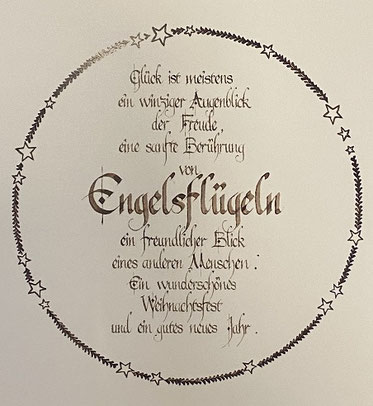 Glück ist meistens
ein winziger Augenblick
der Freude,
eine sanfte Berührung
von
Engelsflügeln
ein freundlicher Blick
eines anderen Menschen.
Ein wunderschönes
Weihnachtsfest
und ein gutes neues Jahr.